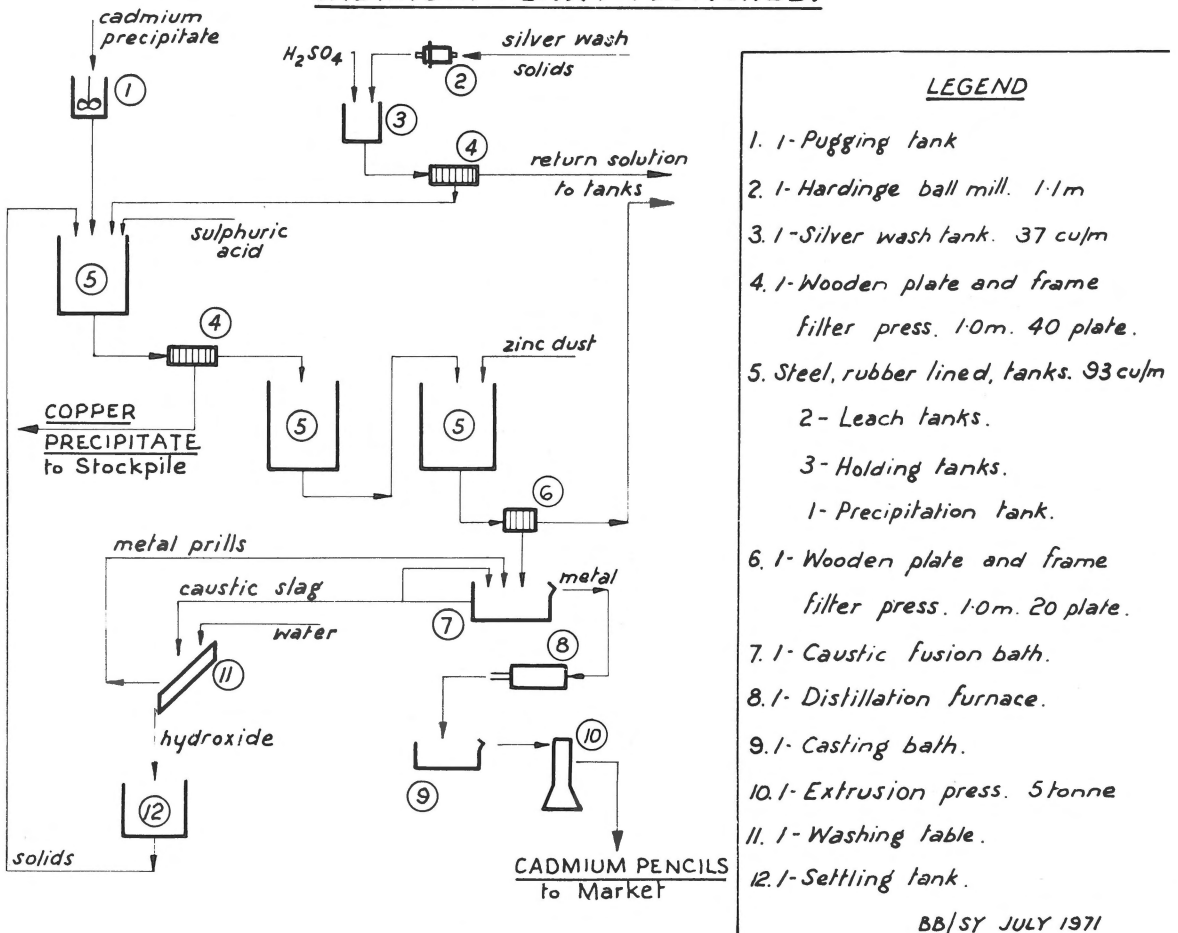 cadmium
precipitate
1
H₂SO₄
silver wash
solids
2
3
4
return solution
to tanks
sulphuric
acid
5
4
zinc dust
COPPER
PRECIPITATE
to Stockpile
5
5
6
metal prills
caustic slag
metal
water
7
8
11
hydroxide
10
9
12
solids
CADMIUM PENCILS
to Market
LEGEND
1. 1-Pugging tank
2. 1-Hardinge ball mill. 1·1m
3. 1-Silver wash tank. 37 cu/m
4. 1-Wooden plate and frame
filter press. 1·0m. 40 plate.
5. Steel, rubber lined, tanks. 93 cu/m
2- Leach tanks.
3- Holding tanks.
1- Precipitation tank.
6. 1- Wooden plate and frame
filter press. 1·0m. 20 plate.
7. 1- Caustic fusion bath.
8. 1- Distillation furnace.
9. 1- Casting bath.
10. 1- Extrusion press. 5 tonne
11. 1- Washing table.
12. 1- Settling tank.
BB/SY JULY 1971